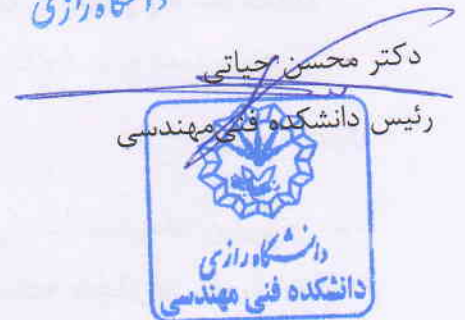 دانشگاه رازی
دکتر محسن حیاتی
رئیس دانشکده فنی مهندسی
دانشگاه رازی
دانشکده فنی مهندسی